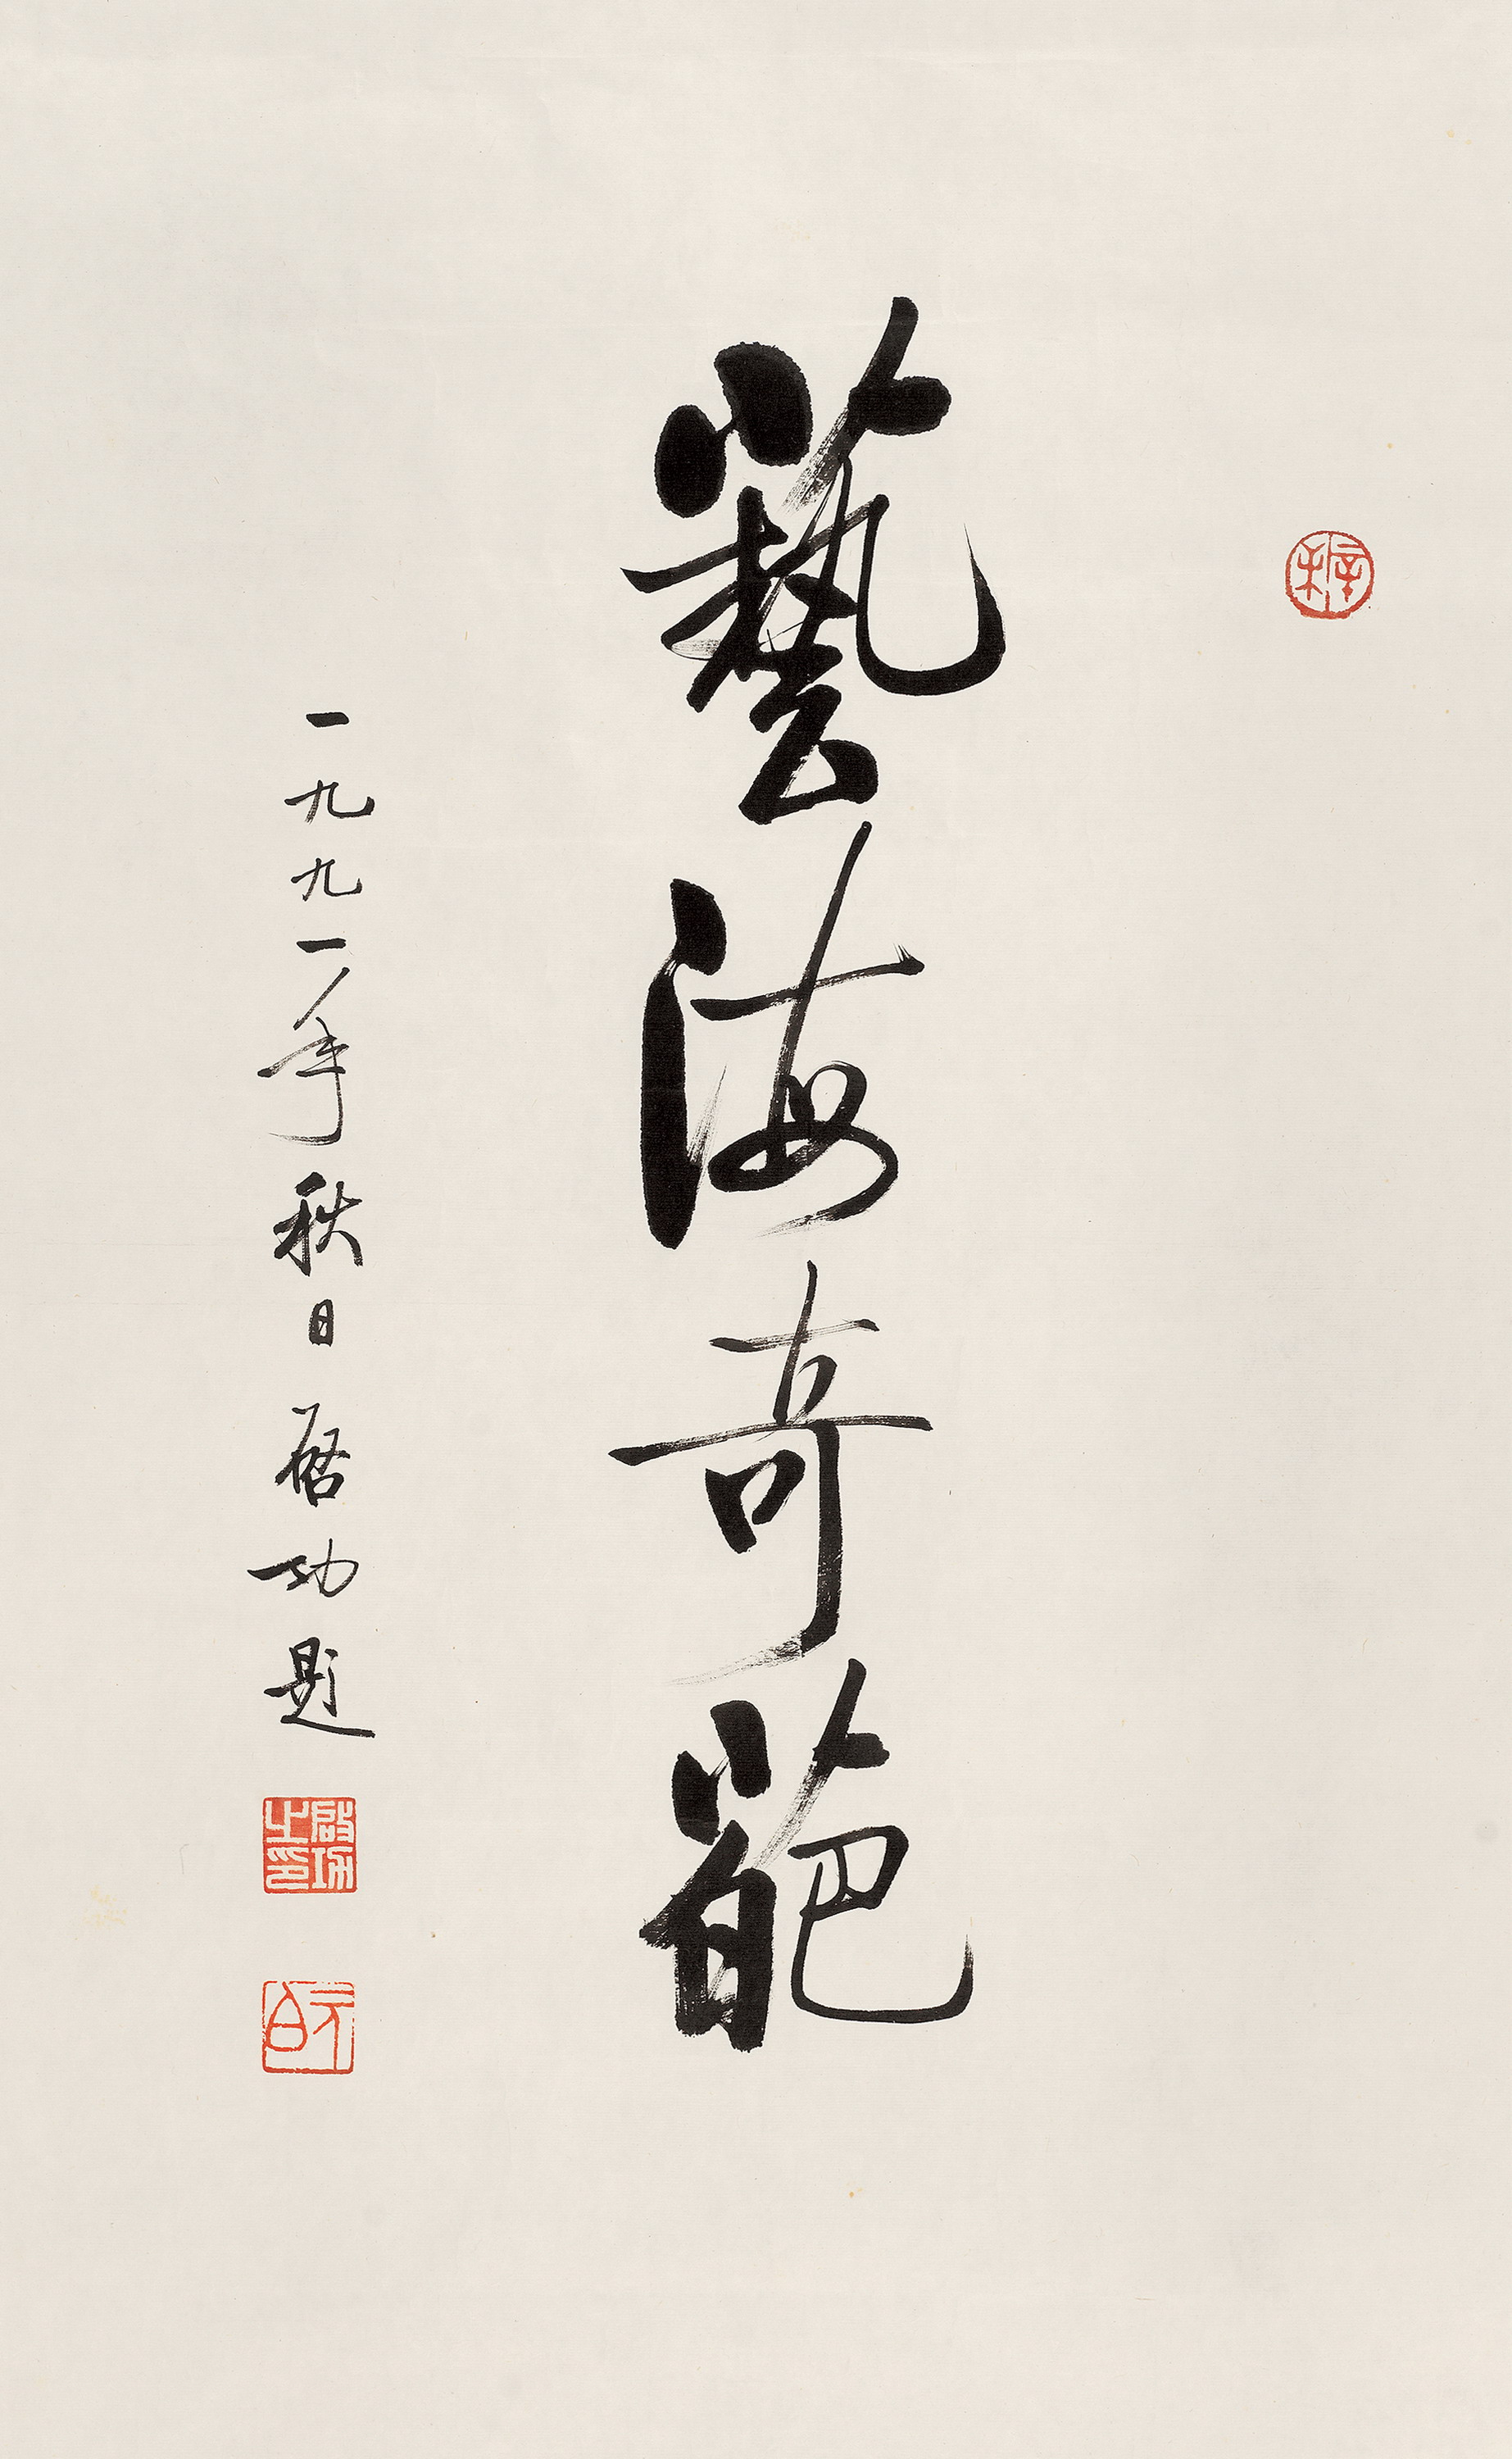 藝海奇葩
一九九一年秋日启功題
啟功之印
元白